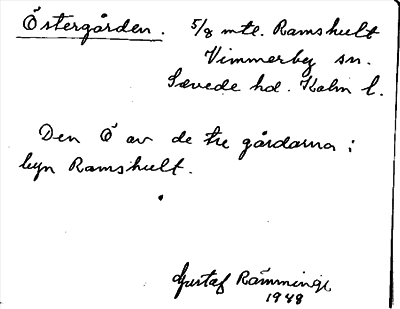 Östergården. 5/8 mtl. Ramshult
Vimmerby sn.
Sevede hd. Kalm l.
Den Ö av de tre gårdarna i
byn Ramshult.
Gustaf Rämminge
1948